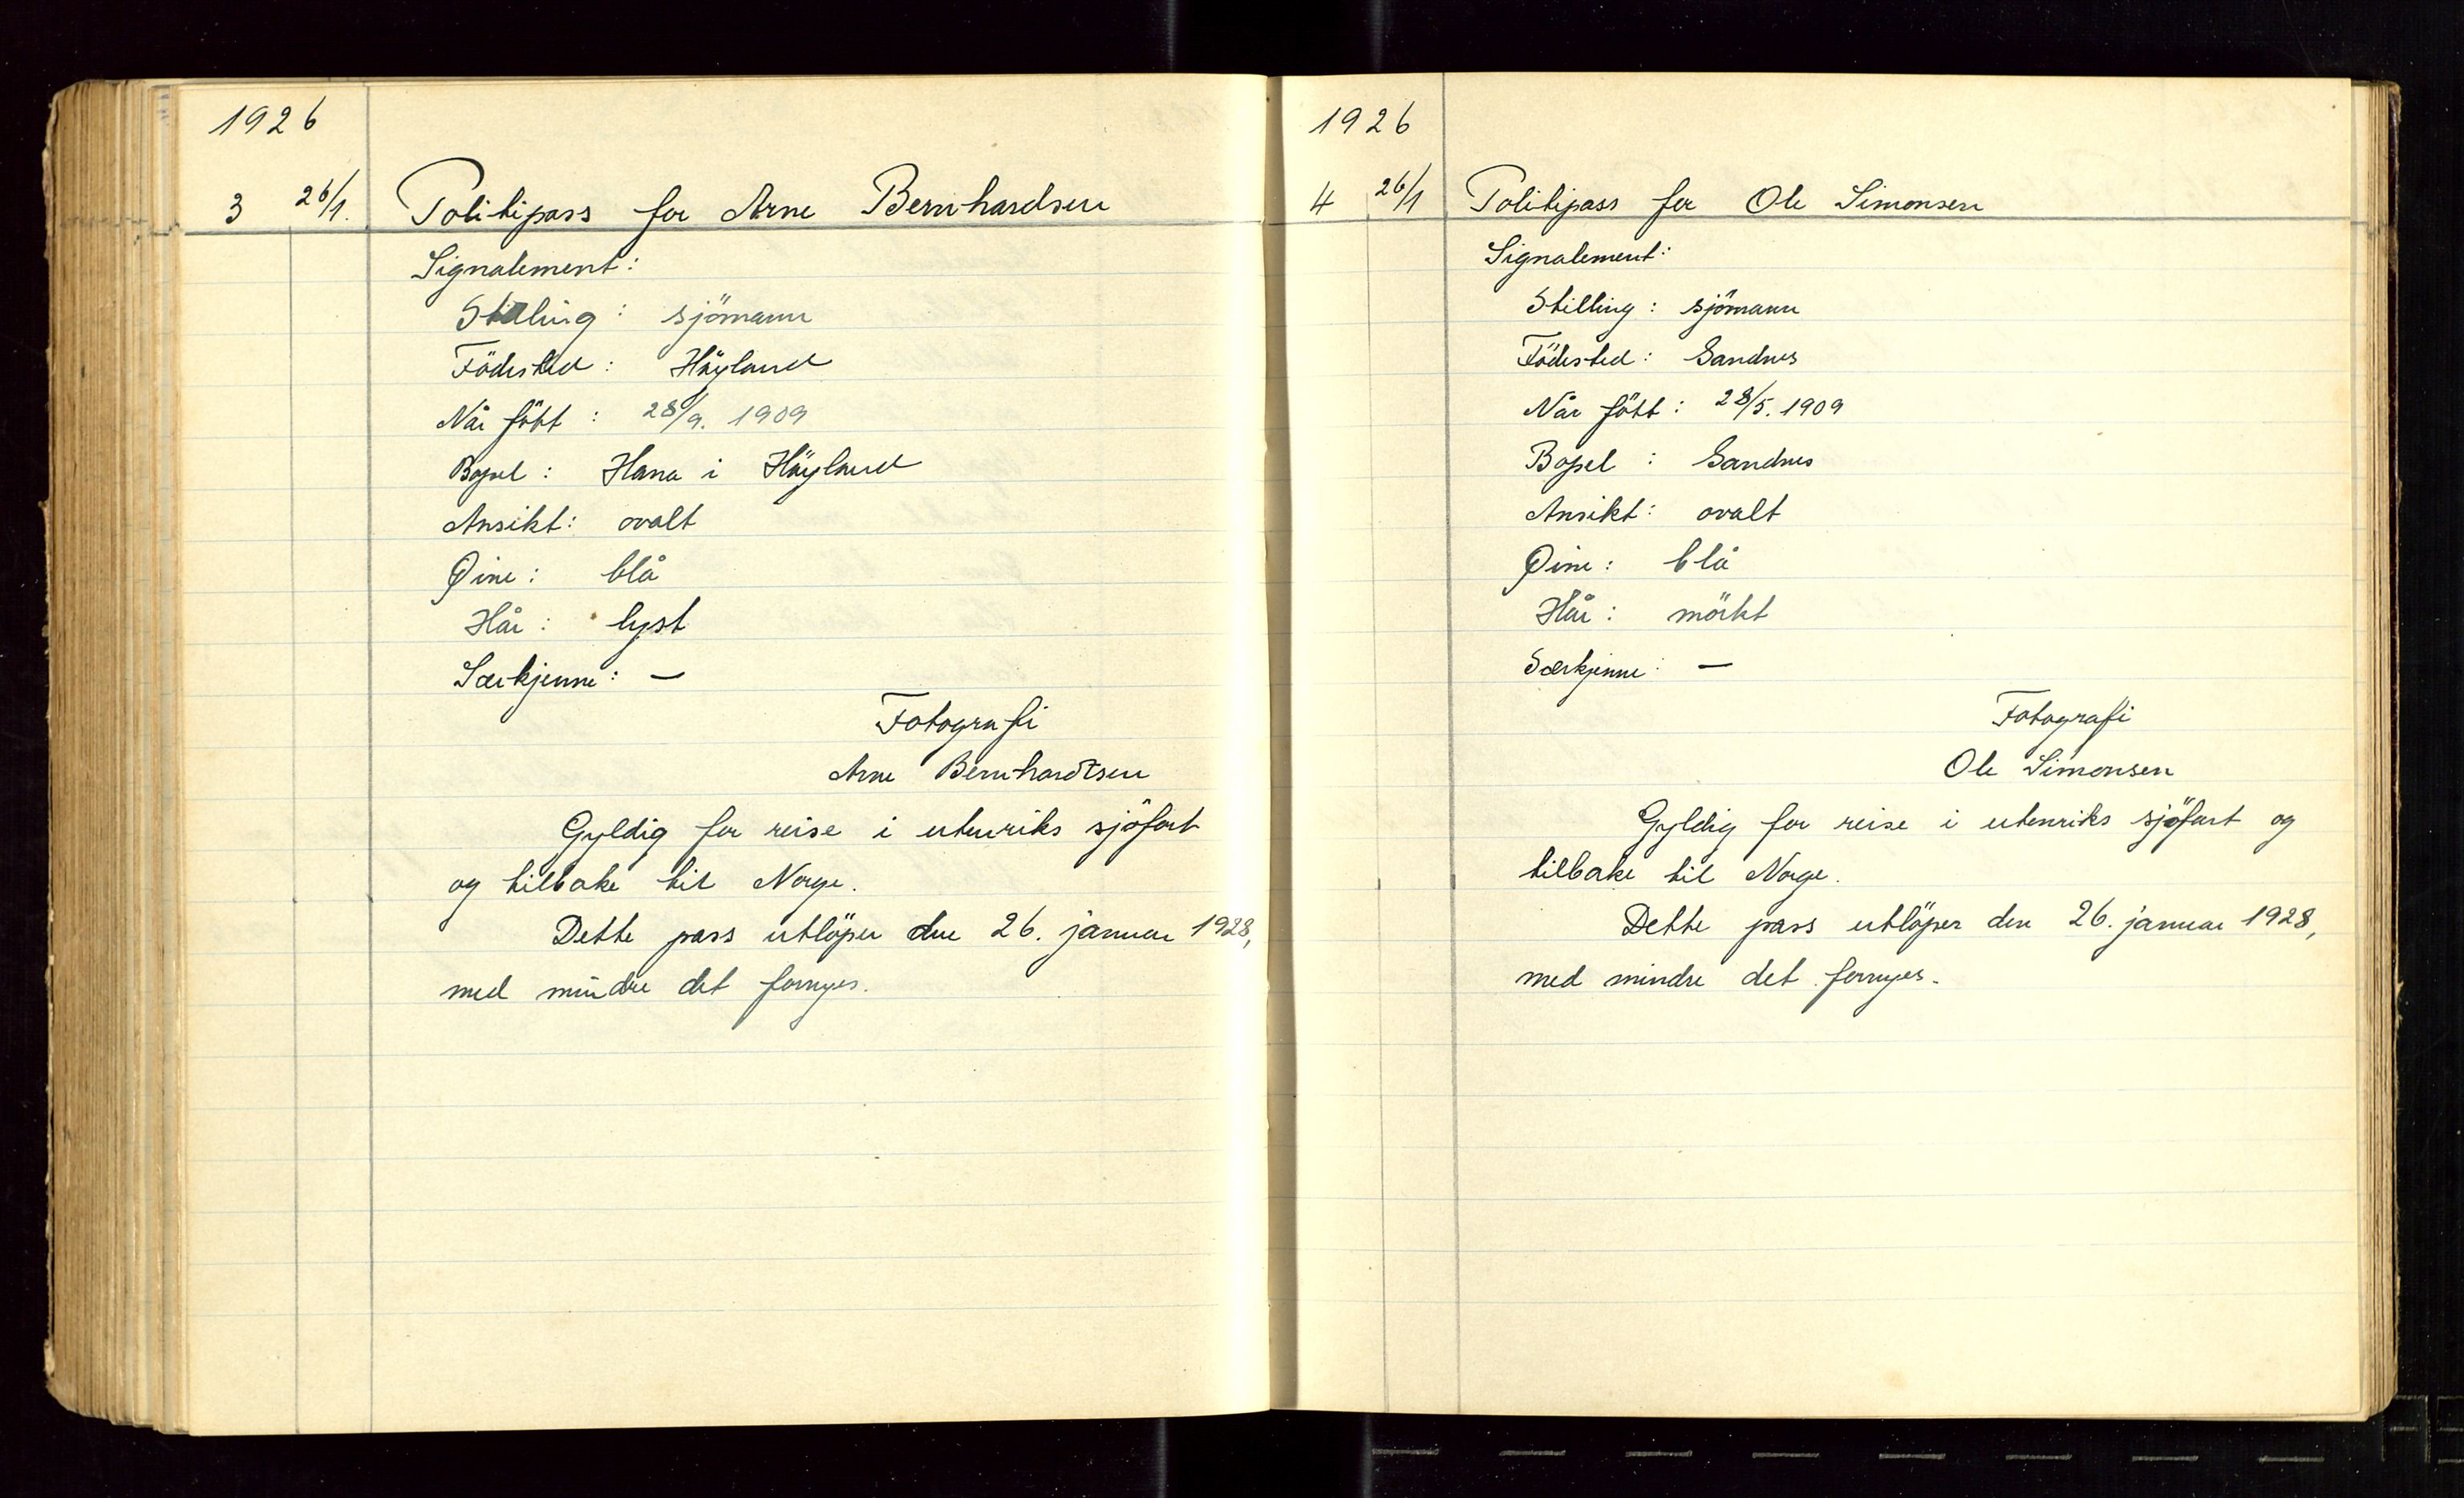 1926
3 26/1. Politipass for Arne Bernhardsen
Signalement:
Stilling: sjömann
Födested: Höyland
Når fött: 28/9. 1909
Bopel: Hana i Höyland
Ansikt: ovalt
Øine: blå
Hår: lyst
Særkjenne: —
Fotografi
Arne Bernhardtsen
Gyldig for reise i utenriks sjöfart
og tilbake til Norge.
Dette pass utlöper den 26. januar 1928,
med mindre det fornyes.
1926
4 26/1 Politipass for Ole Simonsen
Signalement:
Stilling: sjömann
Födested: Sandnes
Når fött: 28/5. 1909
Bopel: Sandnes
Ansikt: ovalt
Øine: blå
Hår: mörkt
Særkjenne: —
Fotografi
Ole Simonsen
Gyldig for reise i utenriks sjöfart og
tilbake til Norge.
Dette pass utlöper den 26. januar 1928,
med mindre det fornyes.